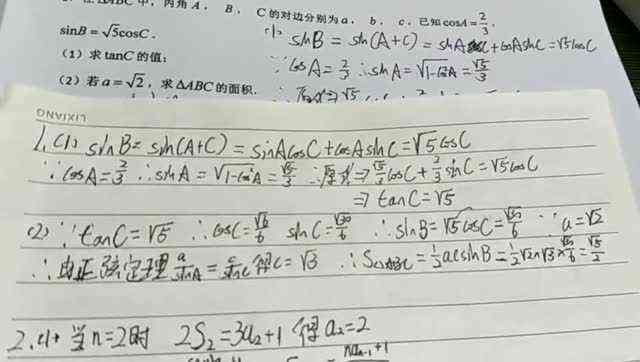 在△ABC 中，内角 A， B， C 的对边分别为 a， b， c，已知 cosA=2/3，
sinB=√5cosC．
(1) sinB = sin(A+C) = sinAcosC+cosAsinC=√5cosC
（1）求 tanC 的值；
∵cosA=2/3 ∴sinA=√1-cos²A=√5/3
（2）若 a=√2，求△ABC 的面积．
LIXIANG
1.(1) sinB= sin(A+C) = sinAcosC+cosAsinC=√5cosC
∵cosA=2/3 ∴sinA=√1-cos²A=√5/3 ∴原式⇒√5/3cosC+2/3sinC=√5cosC
⇒ tanC=√5
(2) ∵tanC=√5 ∴cosC=√6/6 sinC=√30/6 ∴sinB=√5cosC=√30/6 ∵a=√2
∴由正弦定理a/sinA=c/sinC得c=√3 ∴S△ABC=1/2acsinB=1/2√2×√3×√30/6=√5/2
2.(1) 当n=2时 2S₂=3a₂+1 得a₂=2